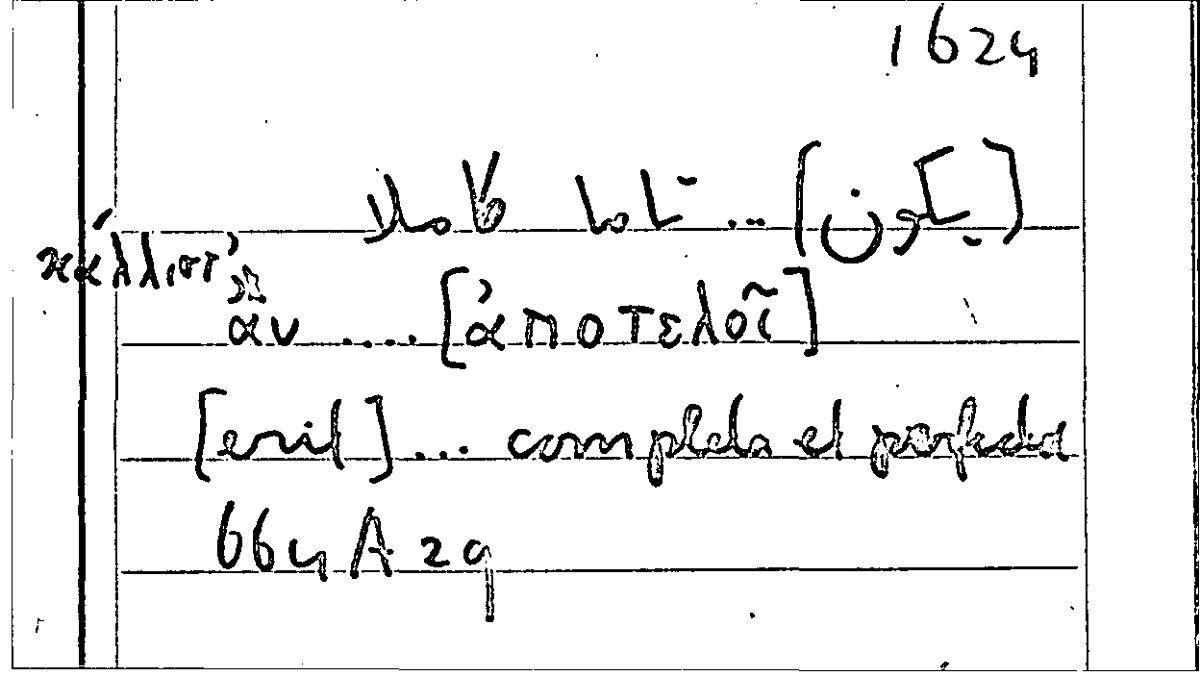 1624
(يكون) ... تاما كاملا
κάλλιστ’
ἂν .... [ἀποτελοῖ]
[erit] ... completa et perfecta
664 A 29